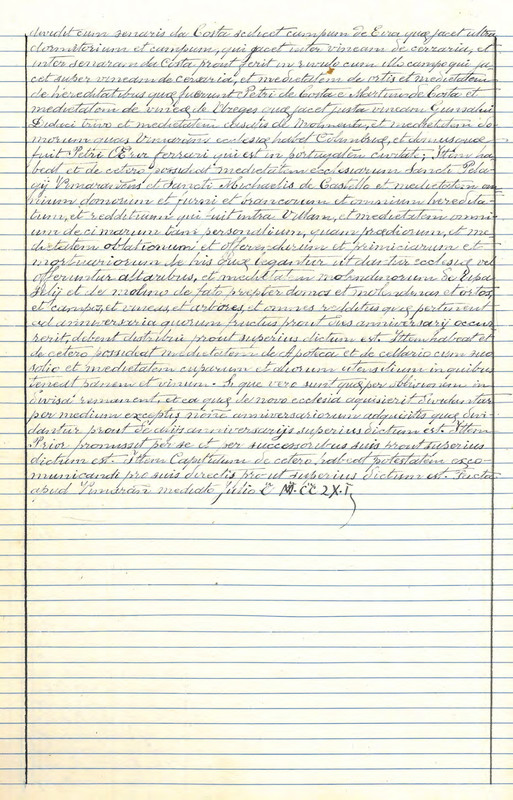 dividit cum senaris da Costa scilicet campum de Eira quæ jacet ultra
dormitorium et campum, qui jacet inter vineam de cerraria, et
inter senaram da Costa prout ferit in cum illo campo qui ja-
cet super vineam de ceraria, et medietatem de ortis et medietatem
de hereditatibus quæ fuerunt Petri de Costa e Martino de Costa et
medietatem de vinea de Creges quæ jacet justa vineam Gunsalvi
Didici trivo et medietatem de Molnaria, et medietatem do-
morum quas Vimarans ecclesiæ habet Colimbriæ, et domusquæ
fuit Petri ferrari qui est in portugalen civitate; Item ha-
beat et de cetero possideat medietatem ecclesiarum Sancti Pela-
gij Vimaranens et Sancti Michaelis de Castello et medietatem om-
nium domorum et furni et et omnium heredita-
tum, et reddituum qui sunt intra Villam, et medietatem omni-
um decimarum tam personalium, quam prædiorum, et me-
dietatem oblationum et offerendarum et primiciarum et
mortuariorum de his quæ legantur vel dantur ecclesiæ vel
offeruntur altaribus, et medietatem molendinorum de Ripa
Selij et de molino de fat, præpter domos et molendinas et ortos,
et campos, et vineas, et arbores, et omnes redditus quæ pertinent
ad anniversaria quorum fructus prout suis anniversarij occur-
rerit, debent distribui prout superius dictum est. Item habeat et
de cetero possideat medietatem de Apoteca et de cellario cum suo
solio et medietatem cuparum et aliorum utensilium in quibus
tenent panem et vinum. Si quæ vero sunt quæ per oblivionem in
divisa remanent, et ea quæ de novo ecclesia aquisierit dividuntur
per medium exceptis nomine anniversariorum adquisitis quæ divi-
dantur prout de alijs anniversarijs superius dictum est. Item
Prior promissit per se et per successoribus suis prout superius
dictum est. Item Capitulum de cetero habeat potestatem exco-
municandi pro suis directis prout superius dictum est. Facta
apud Vimaran mediato Julio E M. CC 2X. I